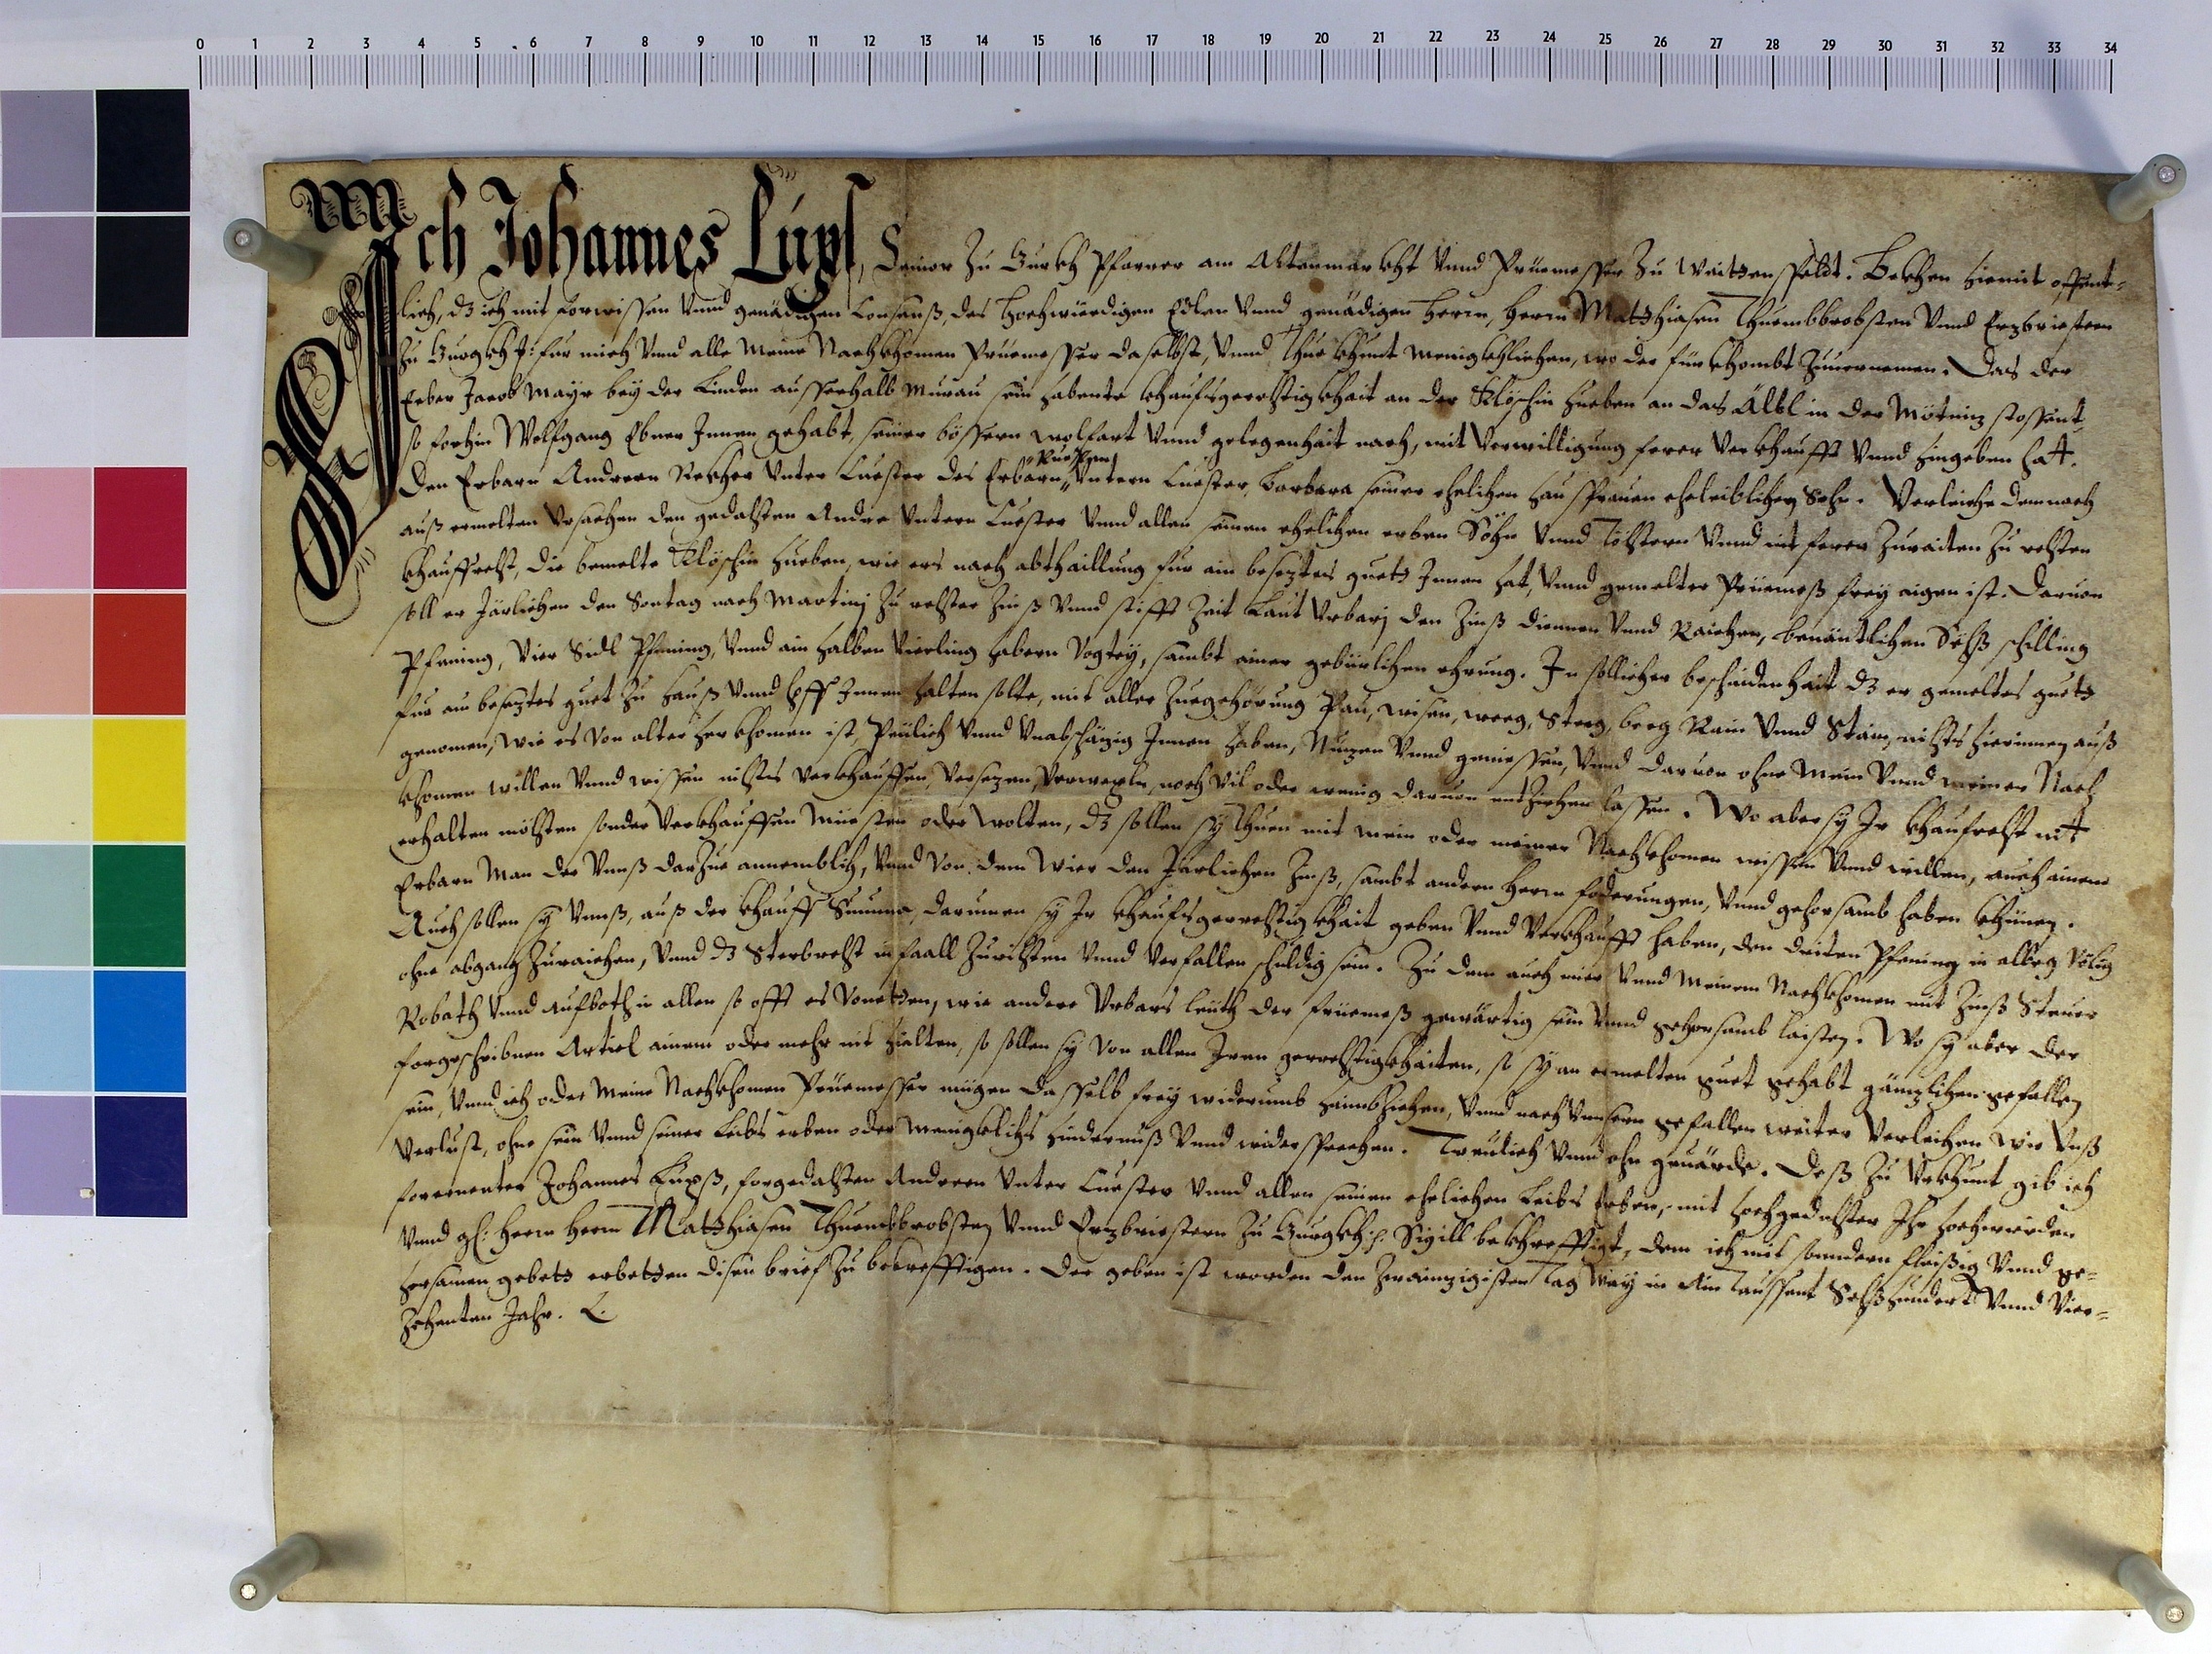 0 1 2 3 4 5 6 7 8 9 10 11 12 13 14 15 16 17 18 19 20 21 22 23 24 25 26 27 28 29 30 31 32 33 34
Ich Johannes Lupß, Senior Zu Gurckh Pfarrer am Altenmarckht Vnnd Früemesser Zu Weittensfeldt. Bekhen hiemit offent-
lich, dz ich mit Vorwissen Vnnd genädigen Consenß, des Hochwierdigen Edlen Vnnd genädigen Herrn, Herrn Matthiasen Thuembbrobsten Vnnd Erzbriestern
Zu Gurgkh für mich Vnnd alle Meine Nachkhomen Früemesser daselbst, Vnnd Thue khunt Menigkhlichen, wo der fürkhombt Zuuernemen. Das der
Erber Jacob Mayr bey der Linden ausserhalb Murau sein habente khaufsgerechtigkhait an der Flöschin Hueben an das Älbl in der Mötniz stossent,
so forhin Wolfgang Ebner Innen gehabt, seiner bössern wolfart Vnnd gelegenhait nach, mit Verwilligung ferer Verkhaufft Vnnd hingeben hatt.
Ruepen
Den Erbarn Andreen Unter Luester des Erbarn Vntern Luester, Barbara seiner ehelichen haussfrauen eheleiblichen Sohn. Verleiche demnach
auß ermelten Vrsachen den gedachten Andre Vntern Luester Vnnd allen seinen ehelichen erben Söhn Vnnd Töchtern Vnnd nit ferer Zuraiten Zu rechten
khauffrecht, die bemelte Flöschin Hueben, wie ers nach abthaillung für ain beseztes guets Innen hat, Vnnd gemelter Früemeß frey aigen ist. Daruon
soll er Järlichen den Sontag nach Martinj Zu rechter Zinß Vnnd stifft Zeit Laut Vrbarj den Zinß diennen Vnnd Raichen, benäntlichen Sechß schilling
Pfening, Vier Pfening, Vnnd ain halben Vierling habern Vogtey, sambt ainer gebürlichen ehrung. In sollicher beschaidenhait dz er gemeltes guets
für ain beseztes guet Zu hauß Vnnd Innen halten solte, mit aller Zuegehörung Pau, wisen, weeg, Steeg, berg Rain Vnnd Stain, nichts hierinnen auß
genomen, Wie es Von alter her khomen ist, Peulich Vnnd Vnabschäzig Innen haben, Nuzen Vnnd geniessen, Vnnd daruon ohne Mein Vnnd meiner Nach
khomen willen Vnnd wissen nichts Verkhauffen, Versezen, Verwexln, noch Vil oder wenig daruon entziehen lassen. Wo aber sy Ir khaufrecht nit
erhalten möchten sonder Verkhauffen Müesten oder Wolten, dz sollen sy Thuen mit mein oder meiner Nachkhomen wissen Vnnd willen, auch ainem
Erbarn Man der Vnnß darzue annemblich, Vnnd Von dem Wier den Järlichen Zinß, sambt andern Herrn foderungen, Vnnd gehorsamb haben khünen.
Auch sollen sy Vnnß, auß der khauff Summa, darumen sy Ir khaufsgerechtigkhait geben Vnnd Verkhaufft haben, den driten Pfening in allweg Völlig
ohne abgang Zuraichen, Vnnd dz Sterbrecht in faall Zurichten Vnnd Verfallen schuldig sein. Zu dem auch mier Vnnd Meinem Nachkhomen mit Zinß Steuer
Robath Vnnd Aufboth in allen so offt es Vonetten, wie andere Vrbars leuth der früemeß gewärtig sein Vnnd gehorsamb laisten. Wo sy aber der
forgeschribnen Artiel ainem oder mehr nit hielten, so sollen sy Von allen Iren gerechtigkhaiten, so sy an ermelten guet gehabt gänzlichen gefallen
sein, Vnnd ich oder Meine Nachkhomen Früemesser mügen dasselb frey widerumb haimbziehen, Vnnd nach Vnnsern gefallen weiter Verleichen wie Vnß
Verlust, ohne sein Vnnd seiner Leibs erben oder Menigkhlichs hindernuß Vnnd widersprechen. Treulich Vnnd ohn geuärde. Deß Zu Vrkhunt gib ich
forernenter Johannes Lupß, forgedachten Andreen Vnter Luester Vnnd allen seinen ehelichen Leibs Erben, mit hochgedachter Ihr hochwierden
Vnnd gl: Herrn Herrn Matthiasen Thuembbrobsten Vnnd Erzbriestern Zu Gurgkh Sigill bekhrefftigt, dem ich mit sonndern fleissig Vnnd ge-
horsamen gebets erbetten disen brief Zu bekrefftigen. Der geben ist worden den Zwainzigisten Tag May in Ain Taussent Sechßhundert Vnnd Vier-
Zehenten Jahr.